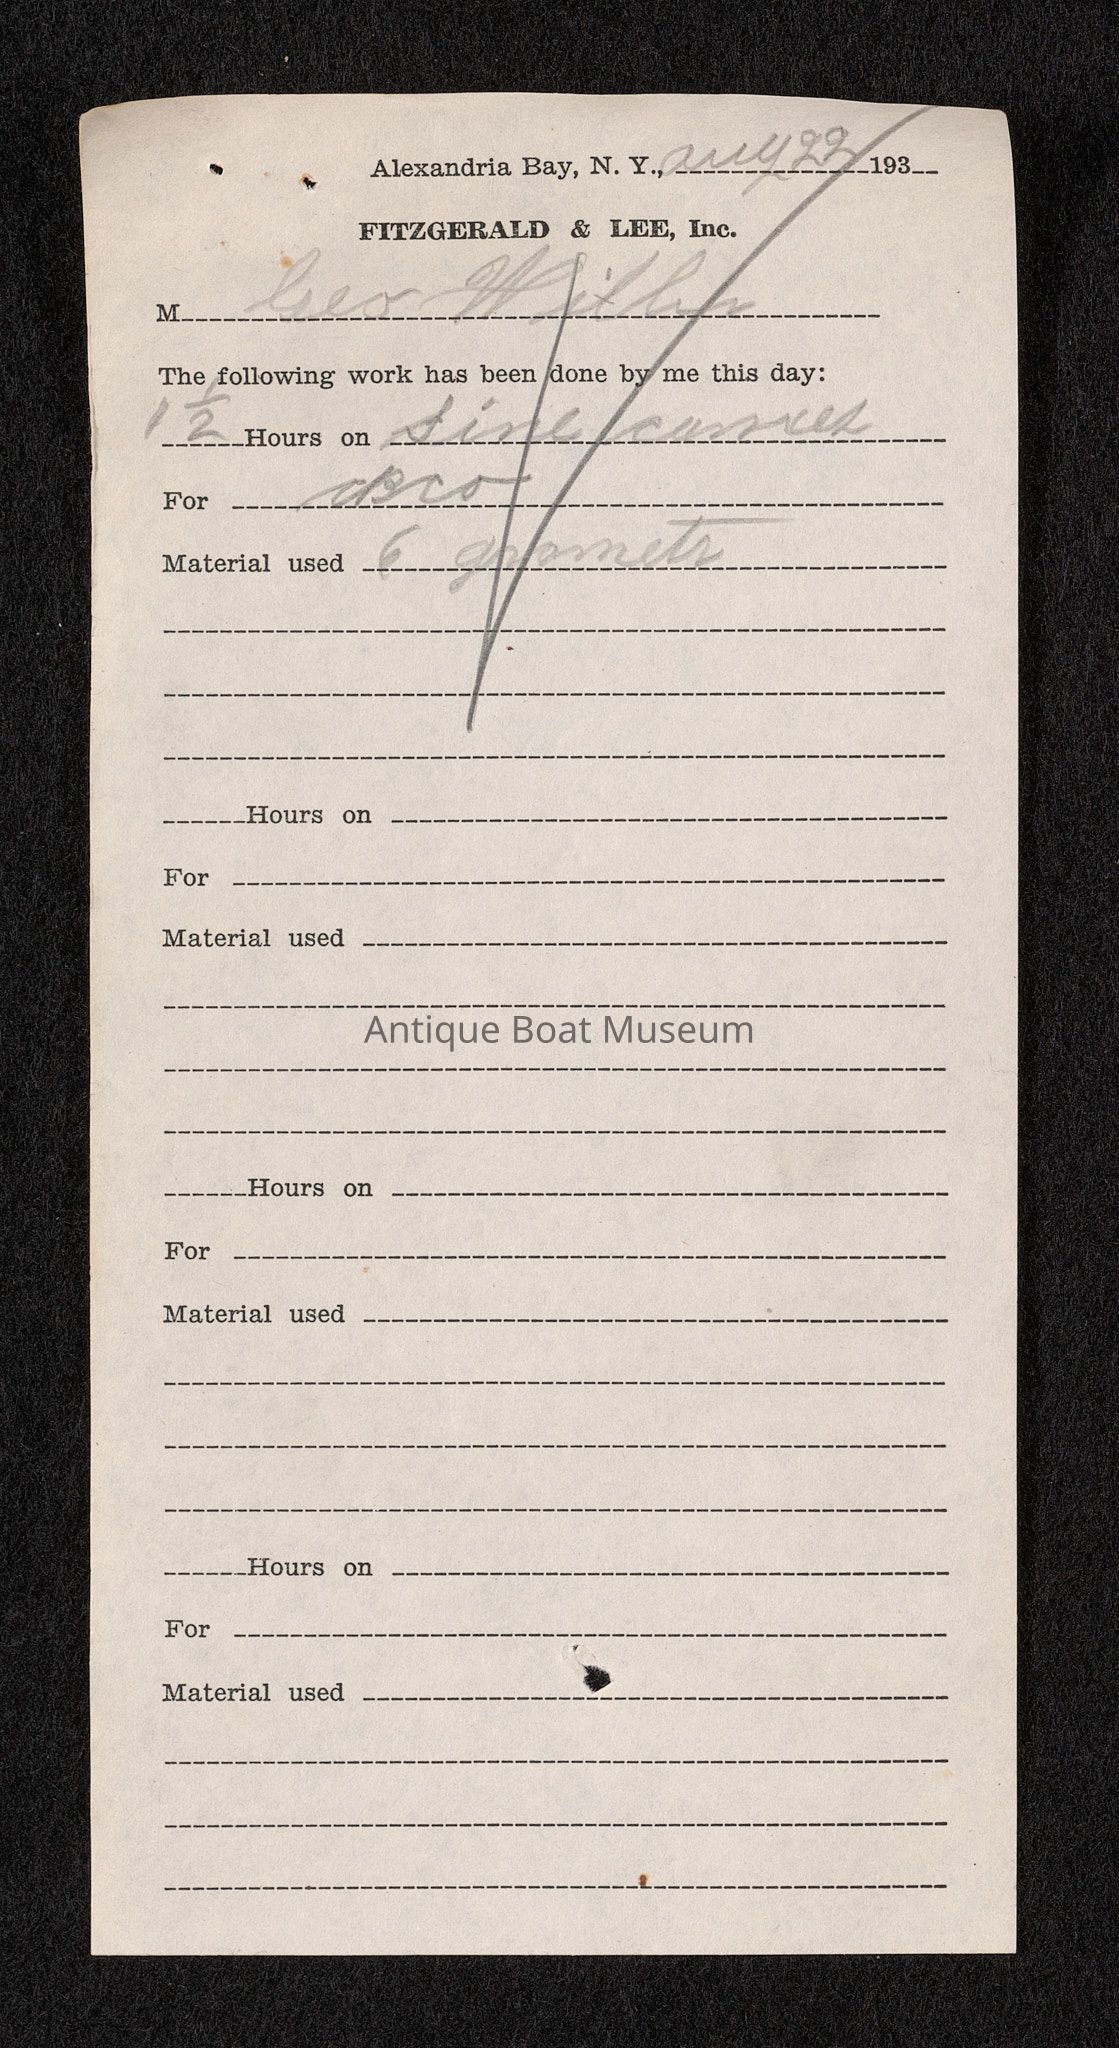 Alexandria Bay, N. Y., Aug 22 193
FITZGERALD & LEE, Inc.
M Geo
The following work has been done by me this day:
1 1/2 Hours on
For
Material used 6 gromets
Hours on
For
Material used
Antique Boat Museum
Hours on
For
Material used
Hours on
For
Material used